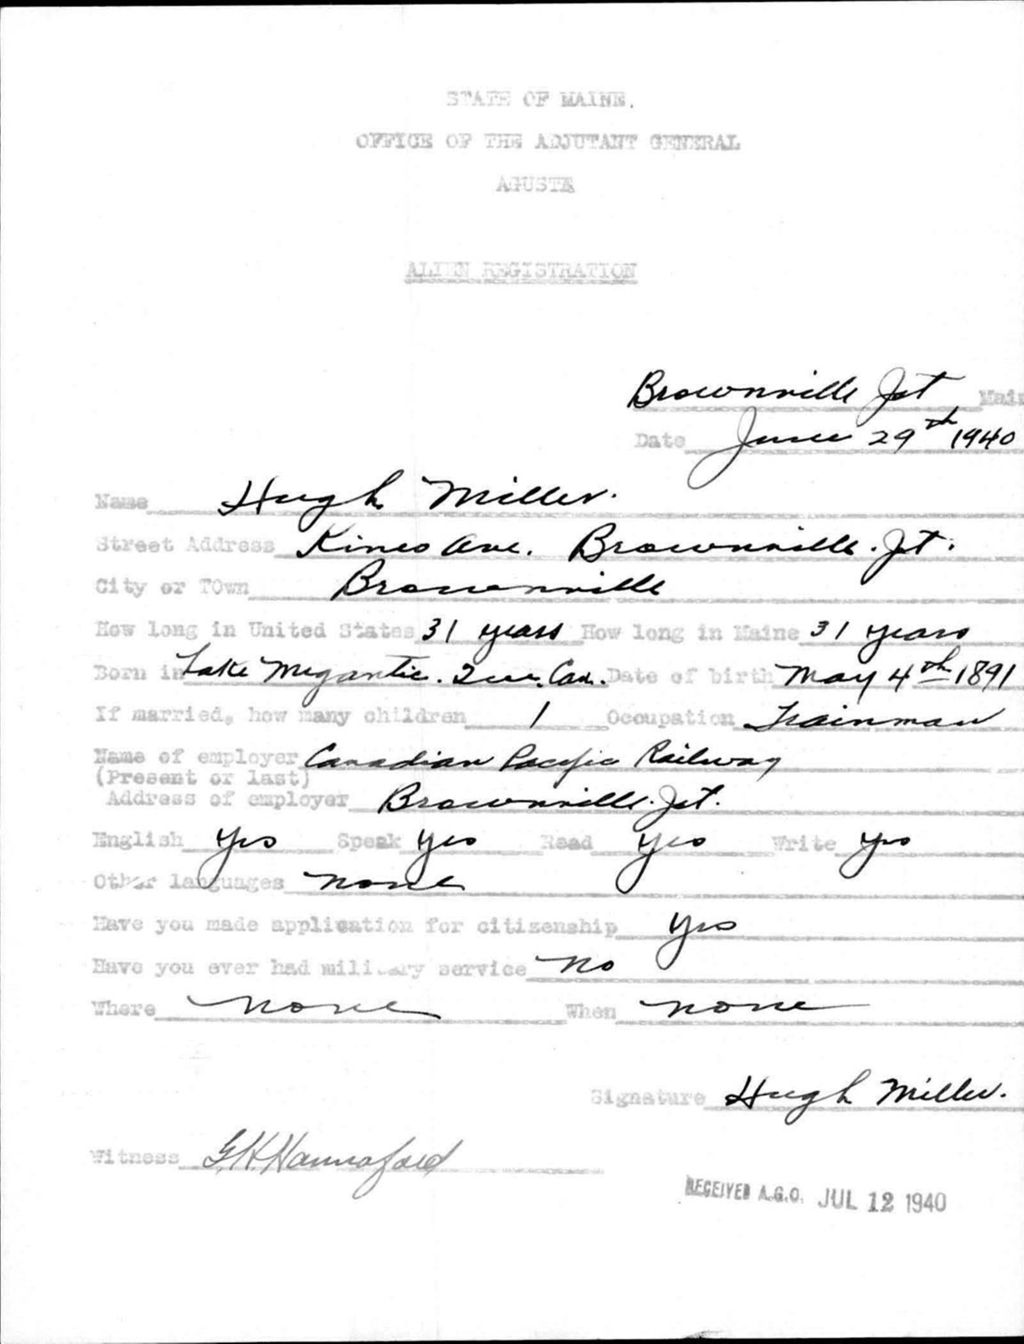 STATE OF MAINE.
OFFICE OF THE ADJUTANT GENERAL
AGUSTA
ALIEN REGISTRATION
Brownville Jct Main
Date June 29th 1940
Name Hugh Miller.
Street Address Kineo Ave. Brownville. Jct.
City or TOwn Brownville
How long in United States 31 years How long in Maine 31 years
Born in Lake Megantic. Que. Can. Date of birth May 4th 1891
If married, how many children 1 Occupation Trainman
Name of employer Canadian Pacific Railway
(Present or last)
Address of employer Brownville. Jct.
English Yes Speak Yes Read Yes Write Yes
Other languages none
Have you made application for citizenship Yes
Have you ever had military service no
Where none When none
Signature Hugh Miller.
Witness G H Hannaford
RECEIVED A.G.O. JUL 12 1940